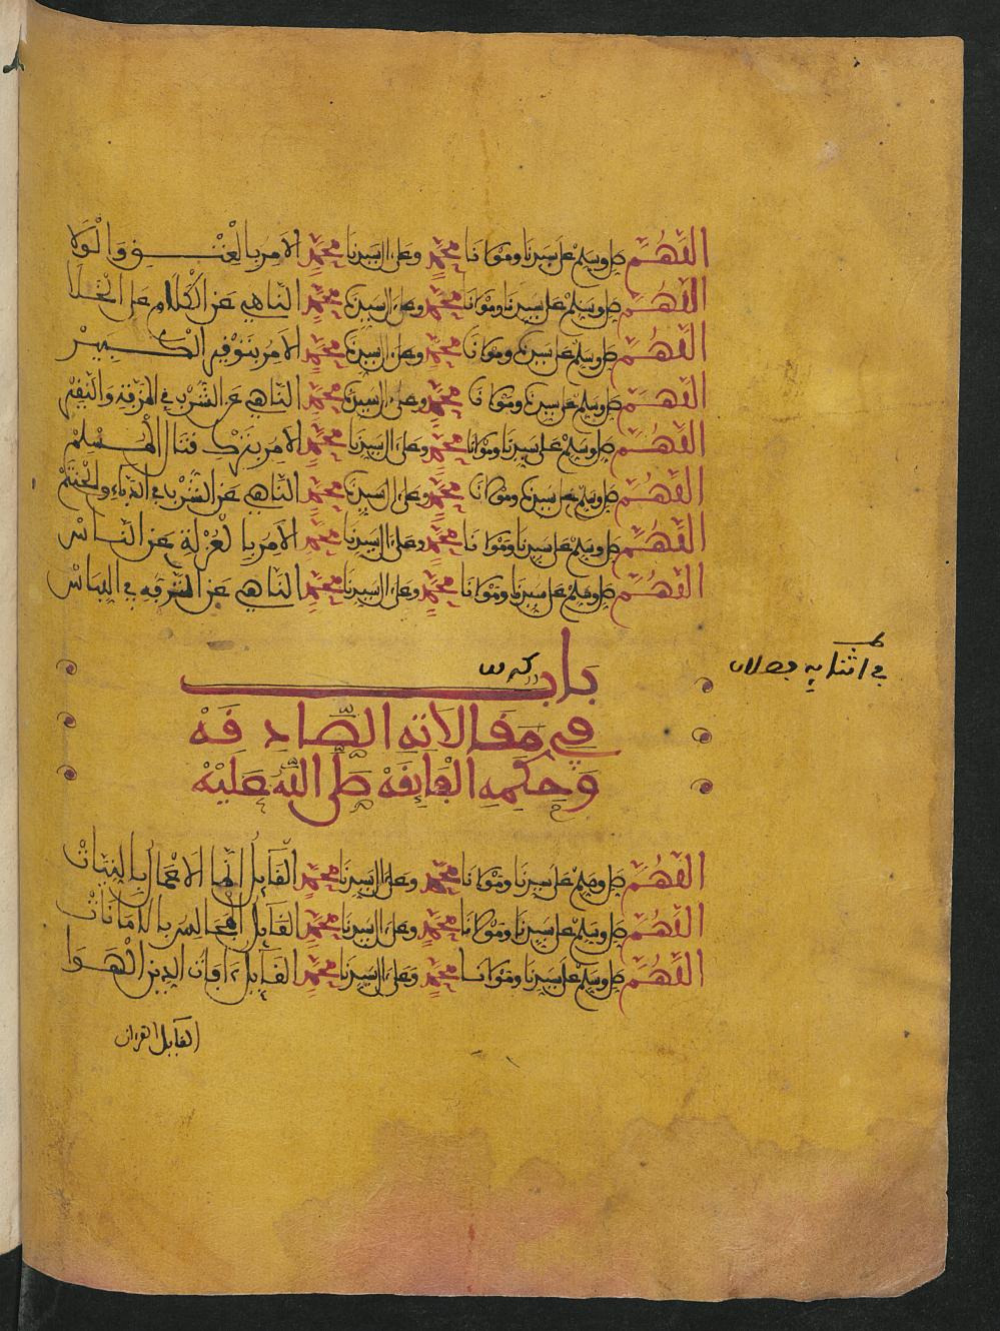 اللهم صل وسلم على سيدنا ومولانا محمد وعلى ال سيدنا محمد الامر بالعتق والولا
اللهم صل وسلم على سيدنا ومولانا محمد وعلى ال سيدنا محمد الناهي عن الكلام على الخلا
اللهم صل وسلم على سيدنا ومولانا محمد وعلى ال سيدنا محمد الامر بتوفير الكبير
اللهم صل وسلم على سيدنا ومولانا محمد وعلى ال سيدنا محمد الناهي عن الشرب في المزفت والنقير
اللهم صل وسلم على سيدنا ومولانا محمد وعلى ال سيدنا محمد الامر بترك قتال المسلم
اللهم صل وسلم على سيدنا ومولانا محمد وعلى ال سيدنا محمد الناهي عن الشرب في الدباء والحنتم
اللهم صل وسلم على سيدنا ومولانا محمد وعلى ال سيدنا محمد الامر بالعزلة عن الناس
اللهم صل وسلم على سيدنا ومولانا محمد وعلى ال سيدنا محمد الناهي عن الشرفه في اللباس
باب
في مقالاته الصادقة
وحكمه الفايقة صلى الله عليه
اللهم صل وسلم على سيدنا ومولانا محمد وعلى ال سيدنا محمد القايل انما الاعمال بالنيات
اللهم صل وسلم على سيدنا ومولانا محمد وعلى ال سيدنا محمد القايل المجالس بالامانات
اللهم صل وسلم على سيدنا ومولانا محمد وعلى ال سيدنا محمد القايل افات الدين الهوا
القايل القرءان